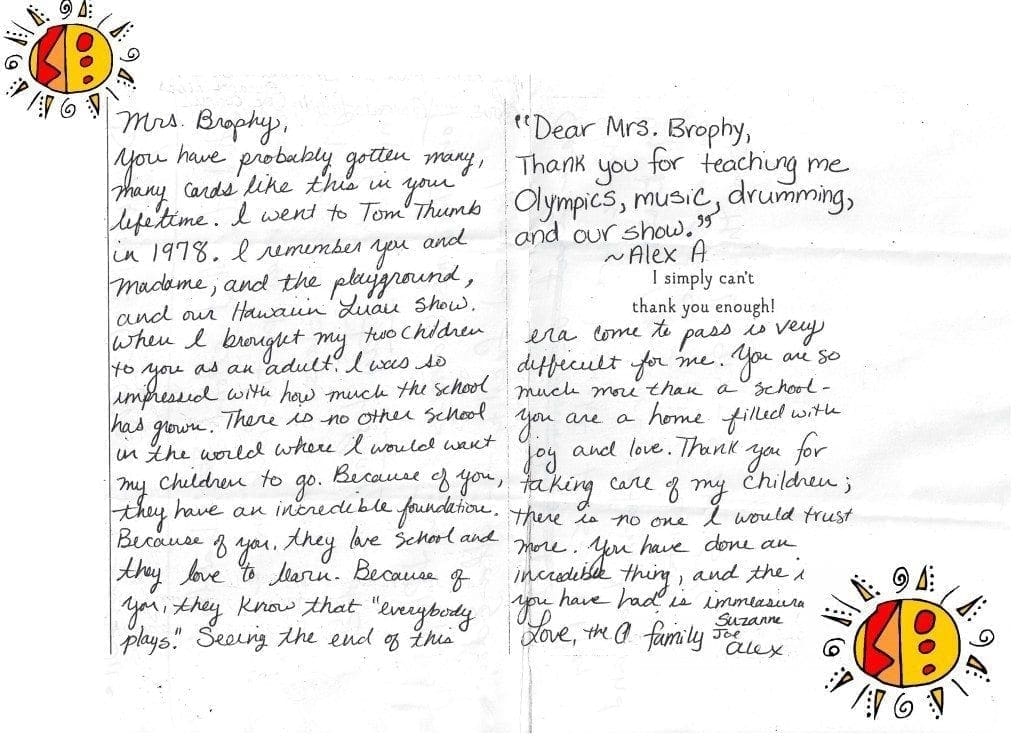 Mrs. Brophy,
You have probably gotten many,
many cards like this in your
lifetime. I went to Tom Thumb
in 1978. I remember you and
Madame, and the playground,
and our Hawaiin Luau Show.
When I brought my two children
to you as an adult, I was so
impressed with how much the school
has grown. There is no other school
in the world where I would want
my children to go. Because of you,
they have an incredible foundation.
Because of you, they love school and
they love to learn. Because of
you, they know that "everybody
plays." Seeing the end of this
"Dear Mrs. Brophy,
Thank you for teaching me
Olympics, music, drumming,
and our show."
~Alex A
I simply can't
thank you enough!
era come to pass is very
difficult for me. You are so
much more than a school -
you are a home filled with
joy and love. Thank you for
taking care of my children;
there is no one I would trust
more. You have done an
incredible thing, and the i
you have had is immeasura
Love, the A family Suzanne
Joe
Alex